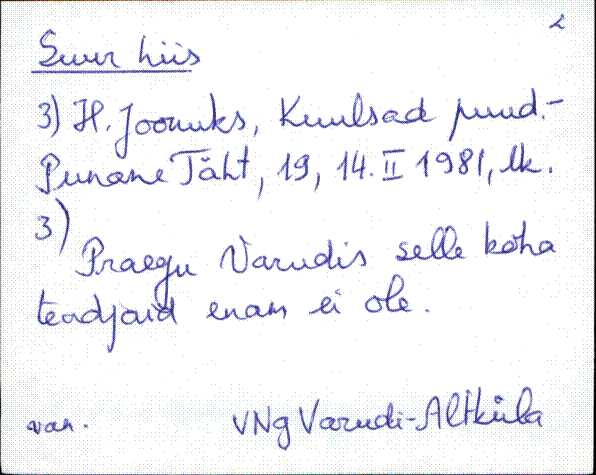 2
Suur hiis
3) H. Joonuks, Kuulsad puud.-
Punane Täht, 19, 14. II 1981, lk.
3)
Praegu Varudis selle koha
teadjaid enam ei ole.
van. VNg Varudi-Altküla